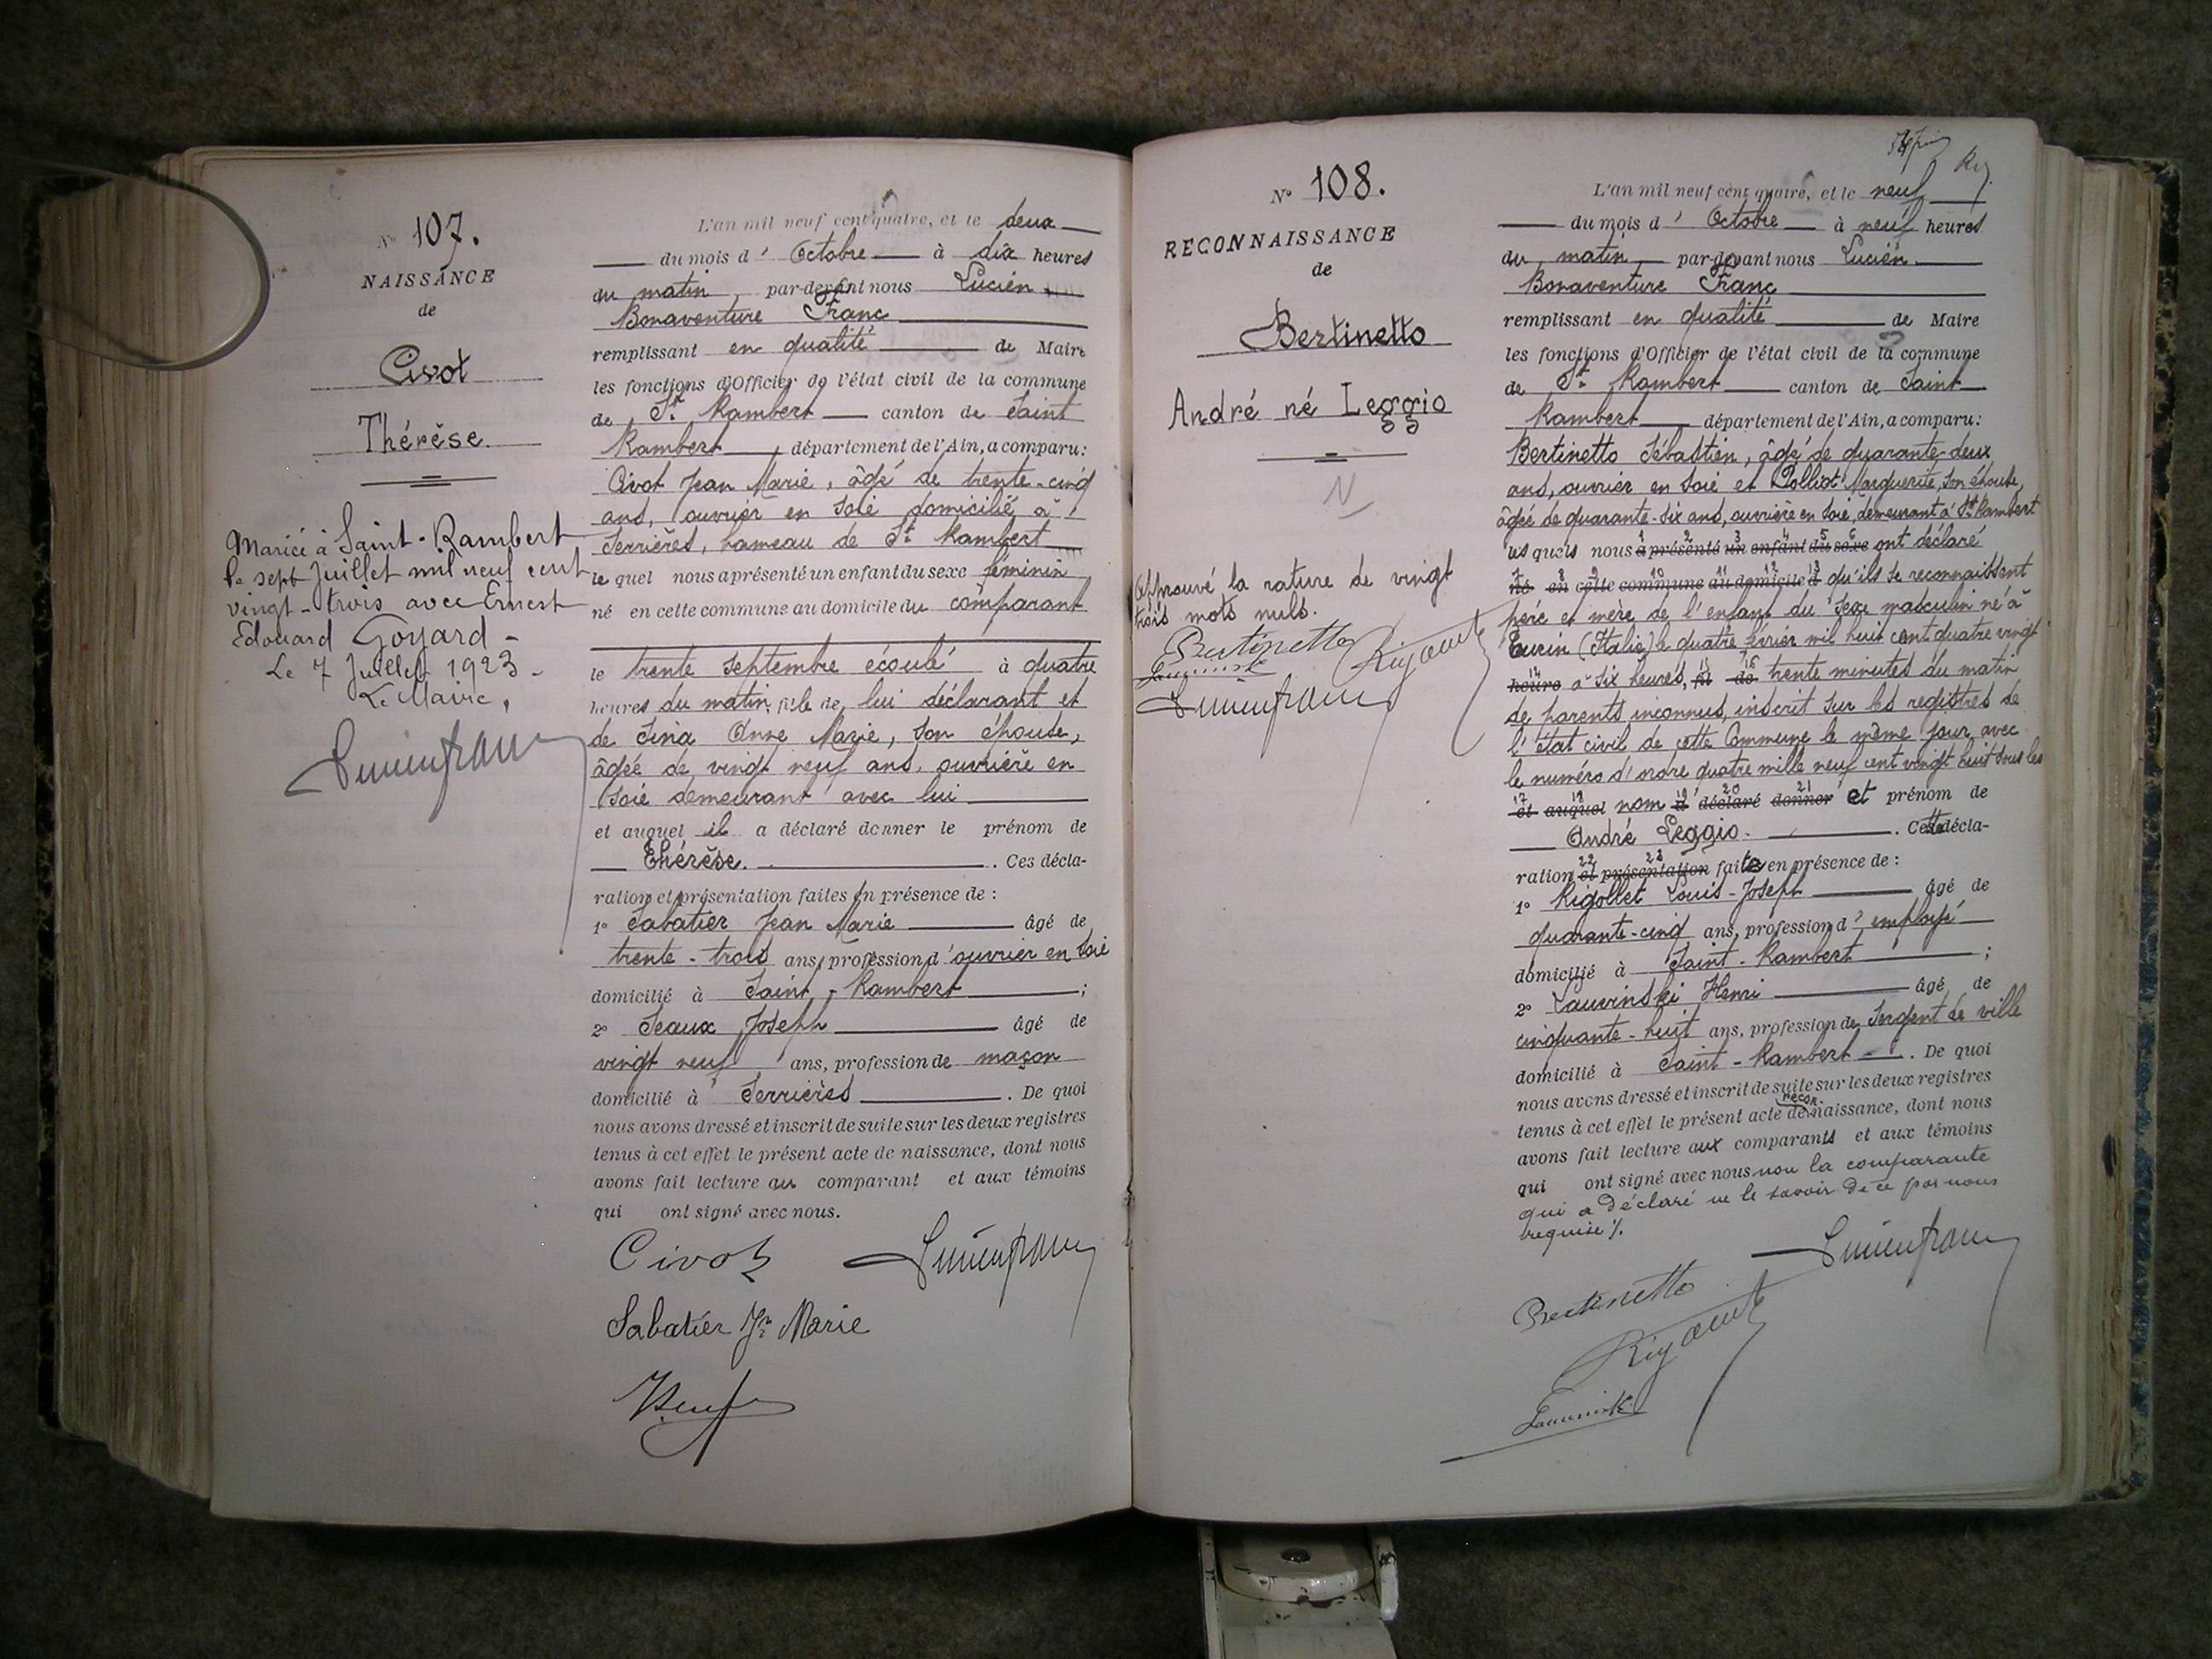 N° 107.
NAISSANCE
de
Civot
Thérèse.
Mariée à Saint-Rambert
le sept Juillet mil neuf cent
vingt-trois avec Ernest
Edouard Goyard -
Le 7 Juillet 1923 -
Le Maire,
L'an mil neuf cent quatre, et le deux
du mois d' Octobre à dix heures
du matin, par-devant nous Lucien
Bonaventure Franc
remplissant en qualité de Maire
les fonctions d'Officier de l'état civil de la commune
de St Rambert canton de Saint
Rambert, département de l'Ain, a comparu:
Civot Jean Marie, âgé de trente-cinq
ans, ouvrier en soie domicilié à
Serrières, hameau de St Rambert
le quel nous a présenté un enfant du sexe féminin
né en cette commune au domicile du comparant
le trente septembre écoulé à quatre
heures du matin, fille de lui déclarant et
de Sina Anne Marie, son épouse,
âgée de vingt neuf ans, ouvrière en
soie demeurant avec lui
et auquel il a déclaré donner le prénom de
Thérèse. . Ces décla-
ration et présentation faites en présence de :
1° Sabatier Jean Marie âgé de
trente-trois ans, profession d'ouvrier en soie
domicilié à Saint-Rambert ;
2° Seaux Joseph âgé de
vingt neuf ans, profession de maçon
domicilié à Serrières . De quoi
nous avons dressé et inscrit de suite sur les deux registres
tenus à cet effet le présent acte de naissance, dont nous
avons fait lecture au comparant et aux témoins
qui ont signé avec nous.
Civot
Sabatier Jn Marie
N° 108.
RECONNAISSANCE
de
Bertinetto
André né Leggio
N
Approuvé la rature de vingt
trois mots nuls.
Bertinetto
L'an mil neuf cent quatre, et le neuf
du mois d' Octobre à neuf heures
du matin par-devant nous Lucien
Bonaventure Franc
remplissant en qualité de Maire
les fonctions d'Officier de l'état civil de la commune
de St Rambert canton de Saint
Rambert département de l'Ain, a comparu:
Bertinetto Sébastien, âgé de quarante-deux
ans, ouvrier en soie et Polliot Marguerite, son épouse,
âgée de quarante-six ans, ouvrière en soie, demeurant à St Rambert
lesquels nous a présenté un enfant du sexe ont déclaré
né en cette commune au domicile d qu'ils se reconnaissent
père et mère de l'enfant du sexe masculin né à
Turin (Italie) le quatre février mil huit cent quatre vingt
heure à six heures, fil de trente minutes du matin
de parents inconnus, inscrit sur les registres de
l'état civil de cette Commune le même jour avec
le numéro d'ordre quatre mille neuf cent vingt huit sous les
et auquel nom a déclaré donner et prénom de
André Leggio. . Cette décla-
ration et présentation faite en présence de :
1° Rigollet Louis-Joseph âgé de
quarante-cinq ans, profession d'employé
domicilié à Saint-Rambert ;
2° Lauvinski Henri âgé de
cinquante-huit ans, profession de Sergent de ville
domicilié à Saint-Rambert . De quoi
nous avons dressé et inscrit de suite sur les deux registres
tenus à cet effet le présent acte de recon-naissance, dont nous
avons fait lecture aux comparants et aux témoins
qui ont signé avec nous non la comparante
qui a déclaré ne le savoir de ce par nous
requise %.
Bertinetto